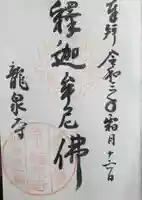 奉拝 令和三年霜月十二日
釋迦牟尼佛
龍泉寺